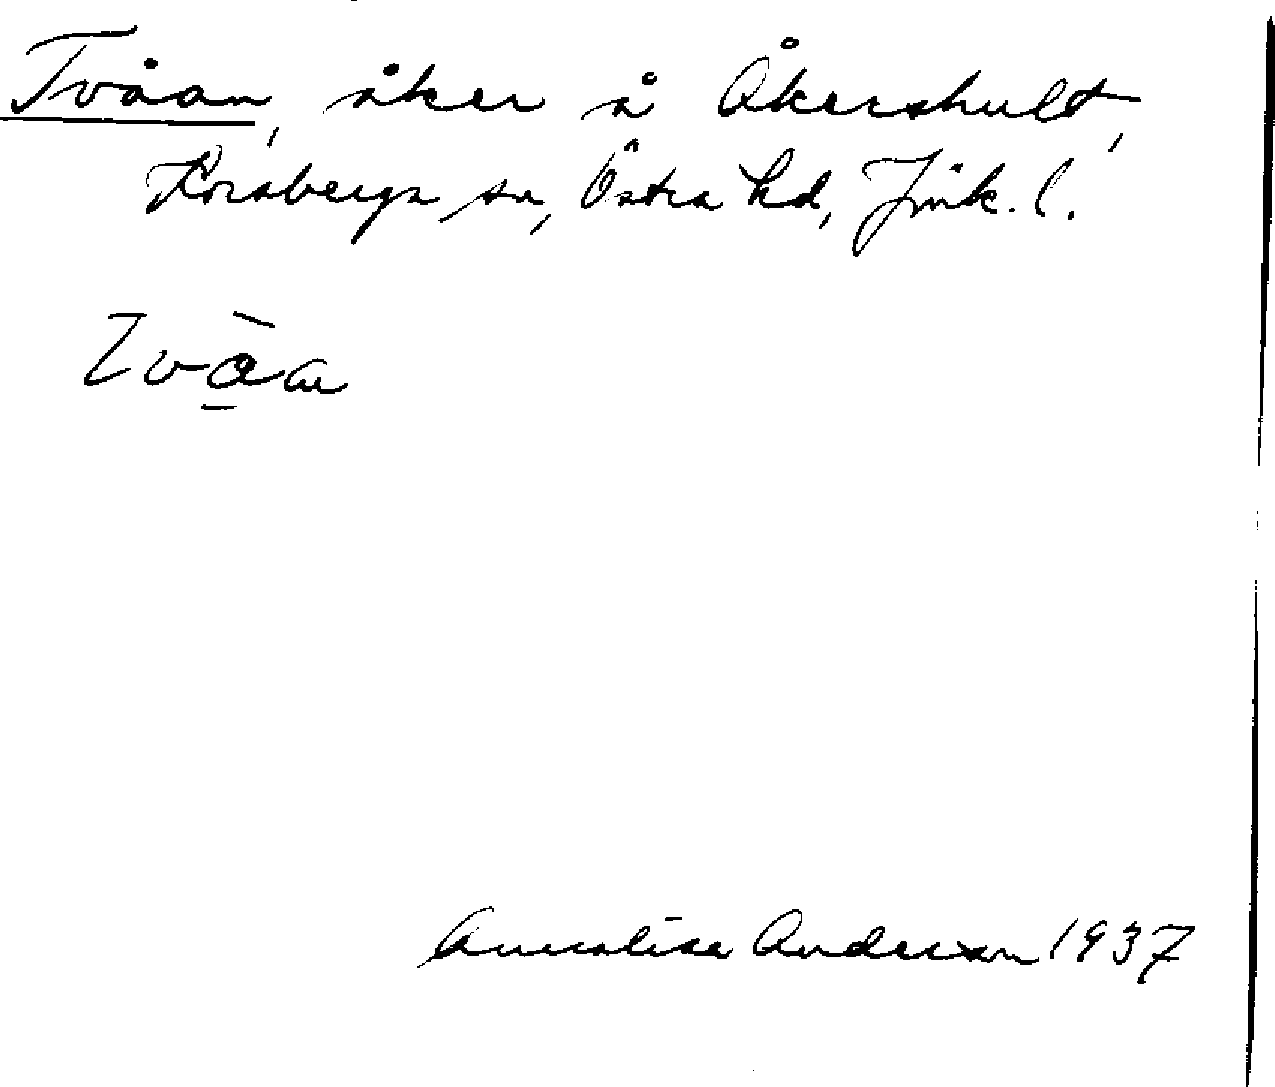 Tvåan, åker å Åkershult,
Korsberga sn, Östra hd, Jönk. l.
Två̀an
Annalisa Anderson 1937